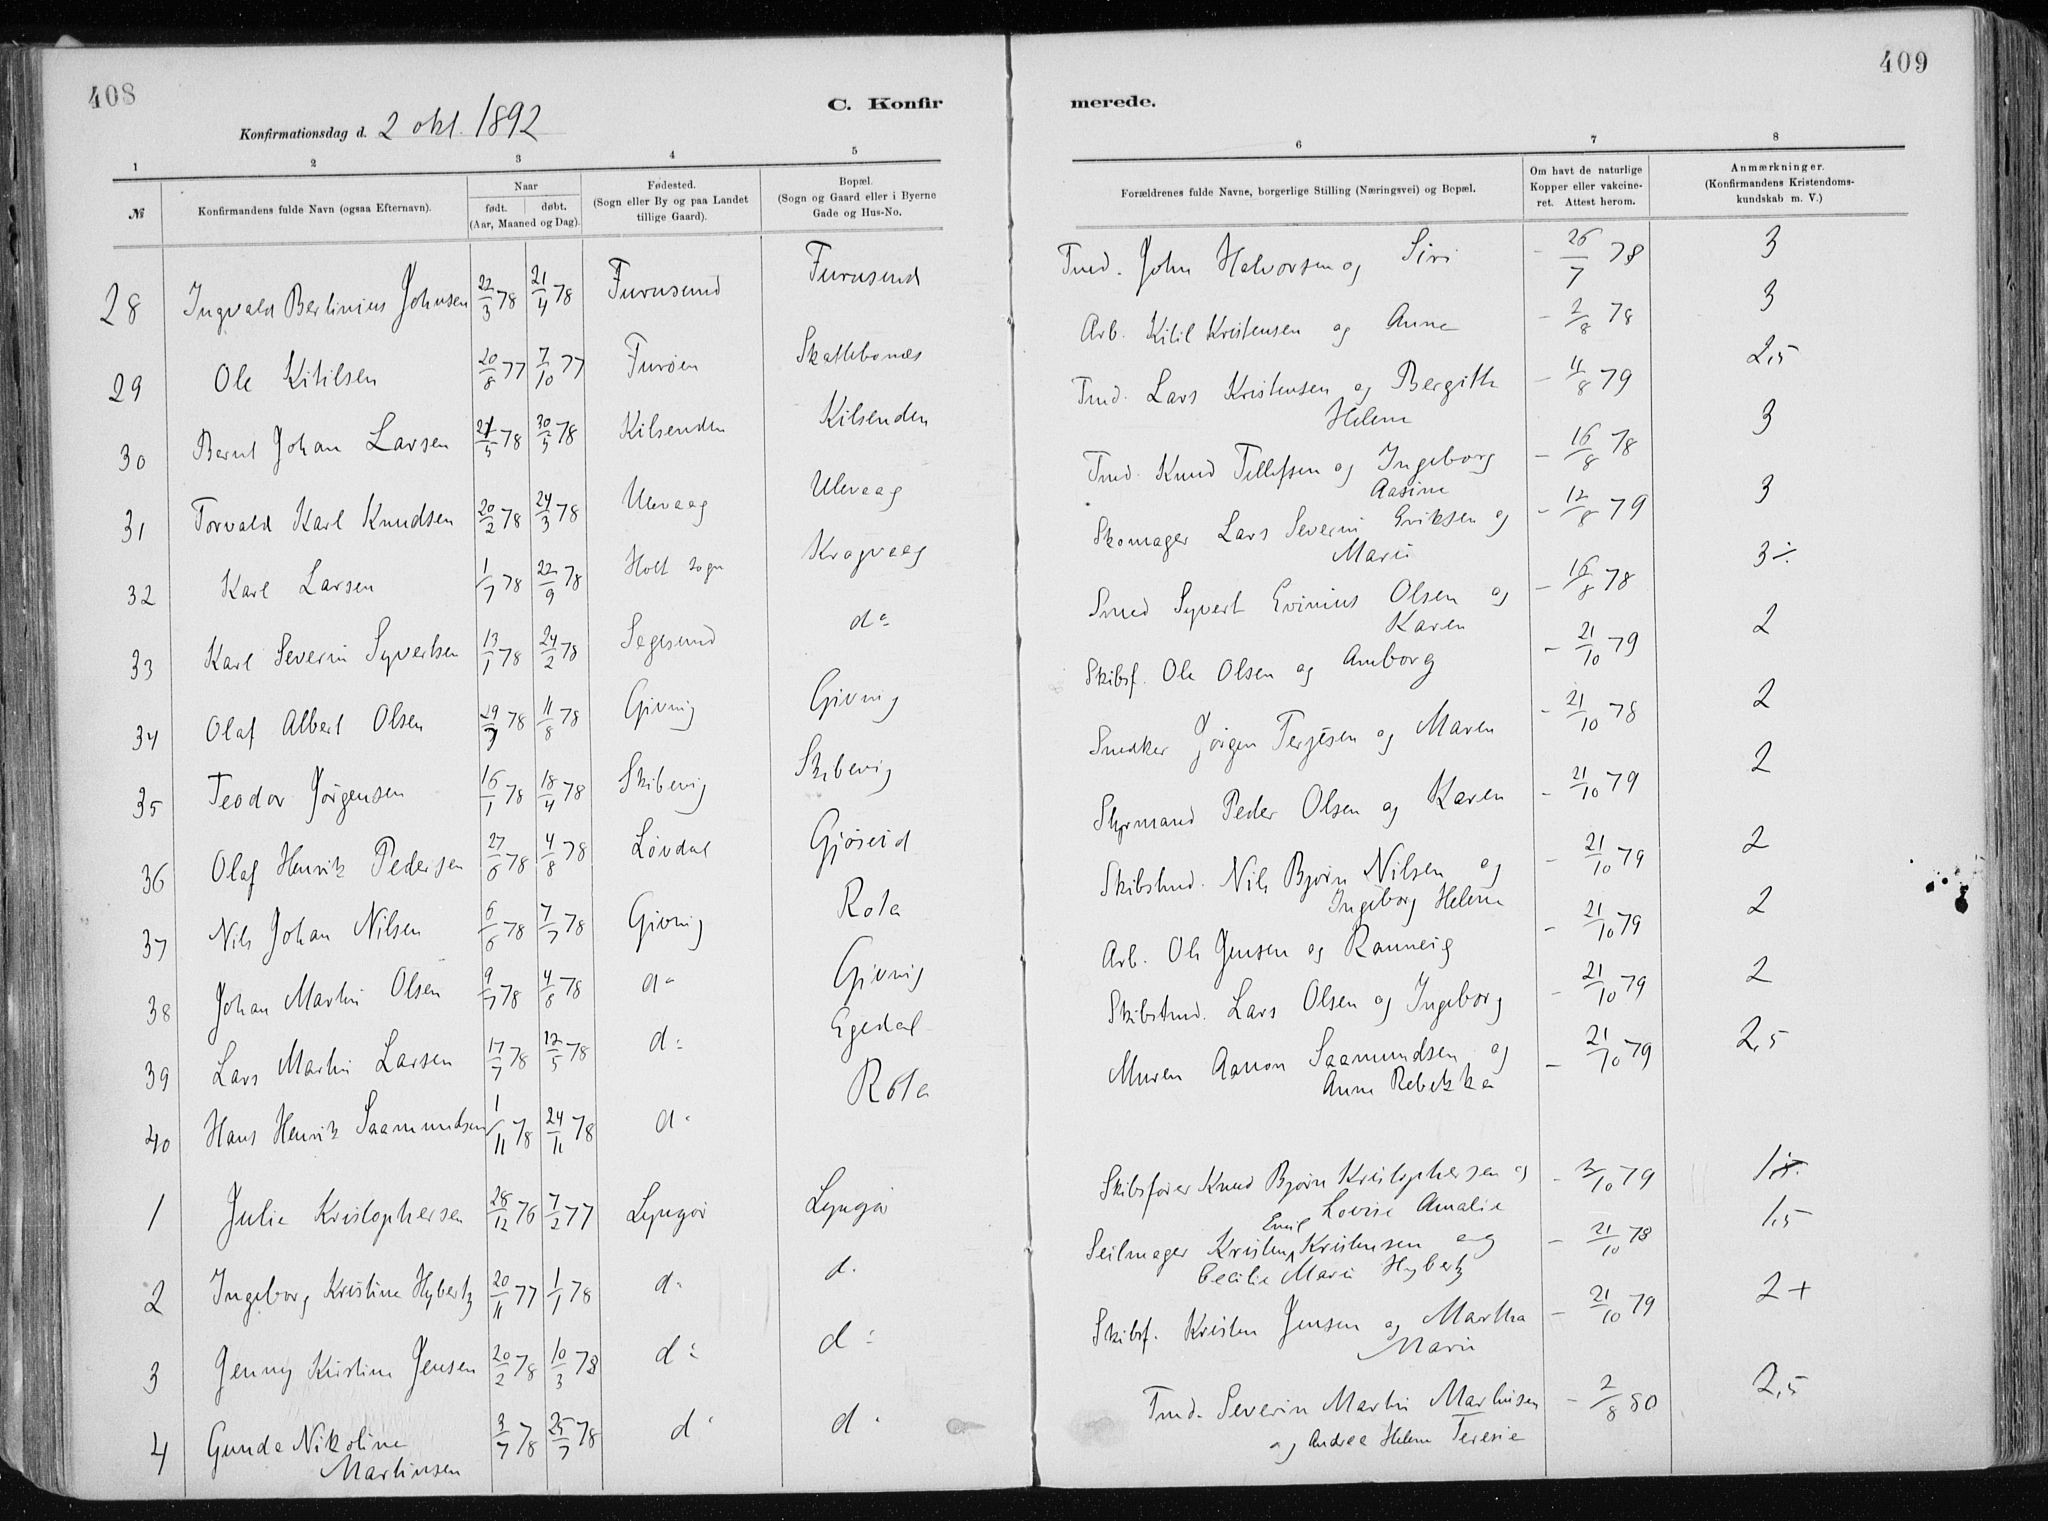 408
409
C. Konfir
merede.
Konfirmationsdag d. 2 okt. 1892
1 2 3 4 5 6 7 8
№
Konfirmandens fulde Navn (ogsaa Efternavn).
Naar
født. døbt.
(Aar, Maaned og Dag).
Fødested.
(Sogn eller By og paa Landet
tillige Gaard).
Bopæl.
(Sogn og Gaard eller i Byerne
Gade og Hus-No.
Forældrenes fulde Navne, borgerlige Stilling (Næringsvei) og Bopæl.
Om havt de naturlige
Kopper eller vakcine-
ret. Attest herom.
Anmærkninger.
(Konfirmandens Kristendoms-
kundskab m. V.)
28 Ingvald Berlinius Johnsen 22/3 78 21/4 78 Furusund Furusund Tmd. John Halvorsen og Siri - 26/7 78 3
29 Ole Kitilsen 20/8 77 7/10 77 Furöen Skattebonæs Arb. Kitil Kristensen og Anne - 2/8 78 3
30 Bernt Johan Larsen 21/5 78 30/5 78 Kilsenden Kilsenden Tmd. Lars Kristensen og Bergithe - 11/8 79 2,5
Helene
31 Torvald Karl Knudsen 20/2 78 24/3 78 Ulevaag Ulevaag Tmd. Knud Tellefsen og Ingeborg - 16/8 78 3
Aasine
32 Karl Larsen 1/7 78 22/9 78 Holt sogn Kragvaag Skomager Lars Severin Eriksen og - 12/8 79 3
Marie
33 Karl Severin Syvertsen 13/1 78 24/2 78 Sagesund do Smed Syvert Evinius Olsen og - 16/8 78 3÷
Karen
34 Olaf Albert Olsen 29/7 78 11/8 78 Givnig Givnig Skibsf. Ole Olsen og Amborg - 21/10 79 2
35 Teodor Jørgensen 16/1 78 18/4 78 Skibevig Skibevig Snedker Jörgen Terjesen og Maren - 21/10 78 2
36 Olaf Henrik Pedersen 27/6 78 4/8 78 Lövdal Gjöseid Styrmand Peder Olsen og Karen - 21/10 79 2
37 Nils Johan Nilsen 6/6 78 7/7 78 Givnig Rota Skibstmd. Nils Bjørn Nilsen og - 21/10 79 2
Ingeborg Helene
38 Johan Martin Olsen 9/7 78 4/8 78 do Givnig Arb. Ole Jensen og Ranneig - 21/10 79 2
39 Lars Martin Larsen 17/7 78 12/5 78 do Egedal Skibstmd. Lars Olsen og Ingeborg - 21/10 79 2
40 Hans Henrik Saamundsen 1/11 78 24/11 78 do Rota Murer Aanon Saamundsen og - 21/10 79 2,5
Anne Rebekka
1 Julie Kristophersen 28/12 76 7/2 77 Lyngör Lyngör Skibsfører Knud Bjørn Kristophersen og - 3/10 79 1
Lovise Amalie
2 Ingeborg Kristine Hybertz 20/11 77 1/1 78 do do Seilmager Kristen Emil Kristensen og - 21/10 78 1,5
Cecilie Marie Hybertz
3 Jenny Kristine Jensen 20/2 78 10/3 78 do do Skibsf. Kristen Jensen og Martha - 21/10 79 2+
Marie
4 Gunda Nikoline 3/7 78 25/7 78 do do Tmd. Severin Martin Martinsen - 2/8 80 2,5
Martinsen
og Andrea Helene Teresie